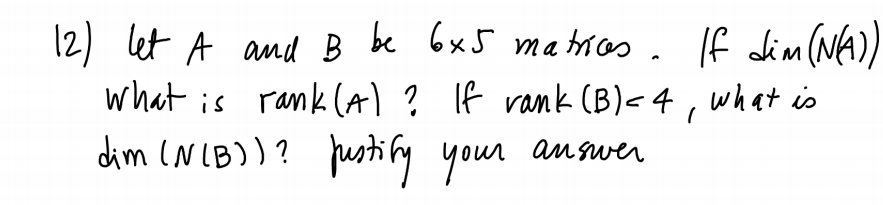 12) let A and B be 6x5 matrices. If dim(N(A))
What is rank(A)? If rank(B)=4, what is
dim(N(B))? Justify your answer